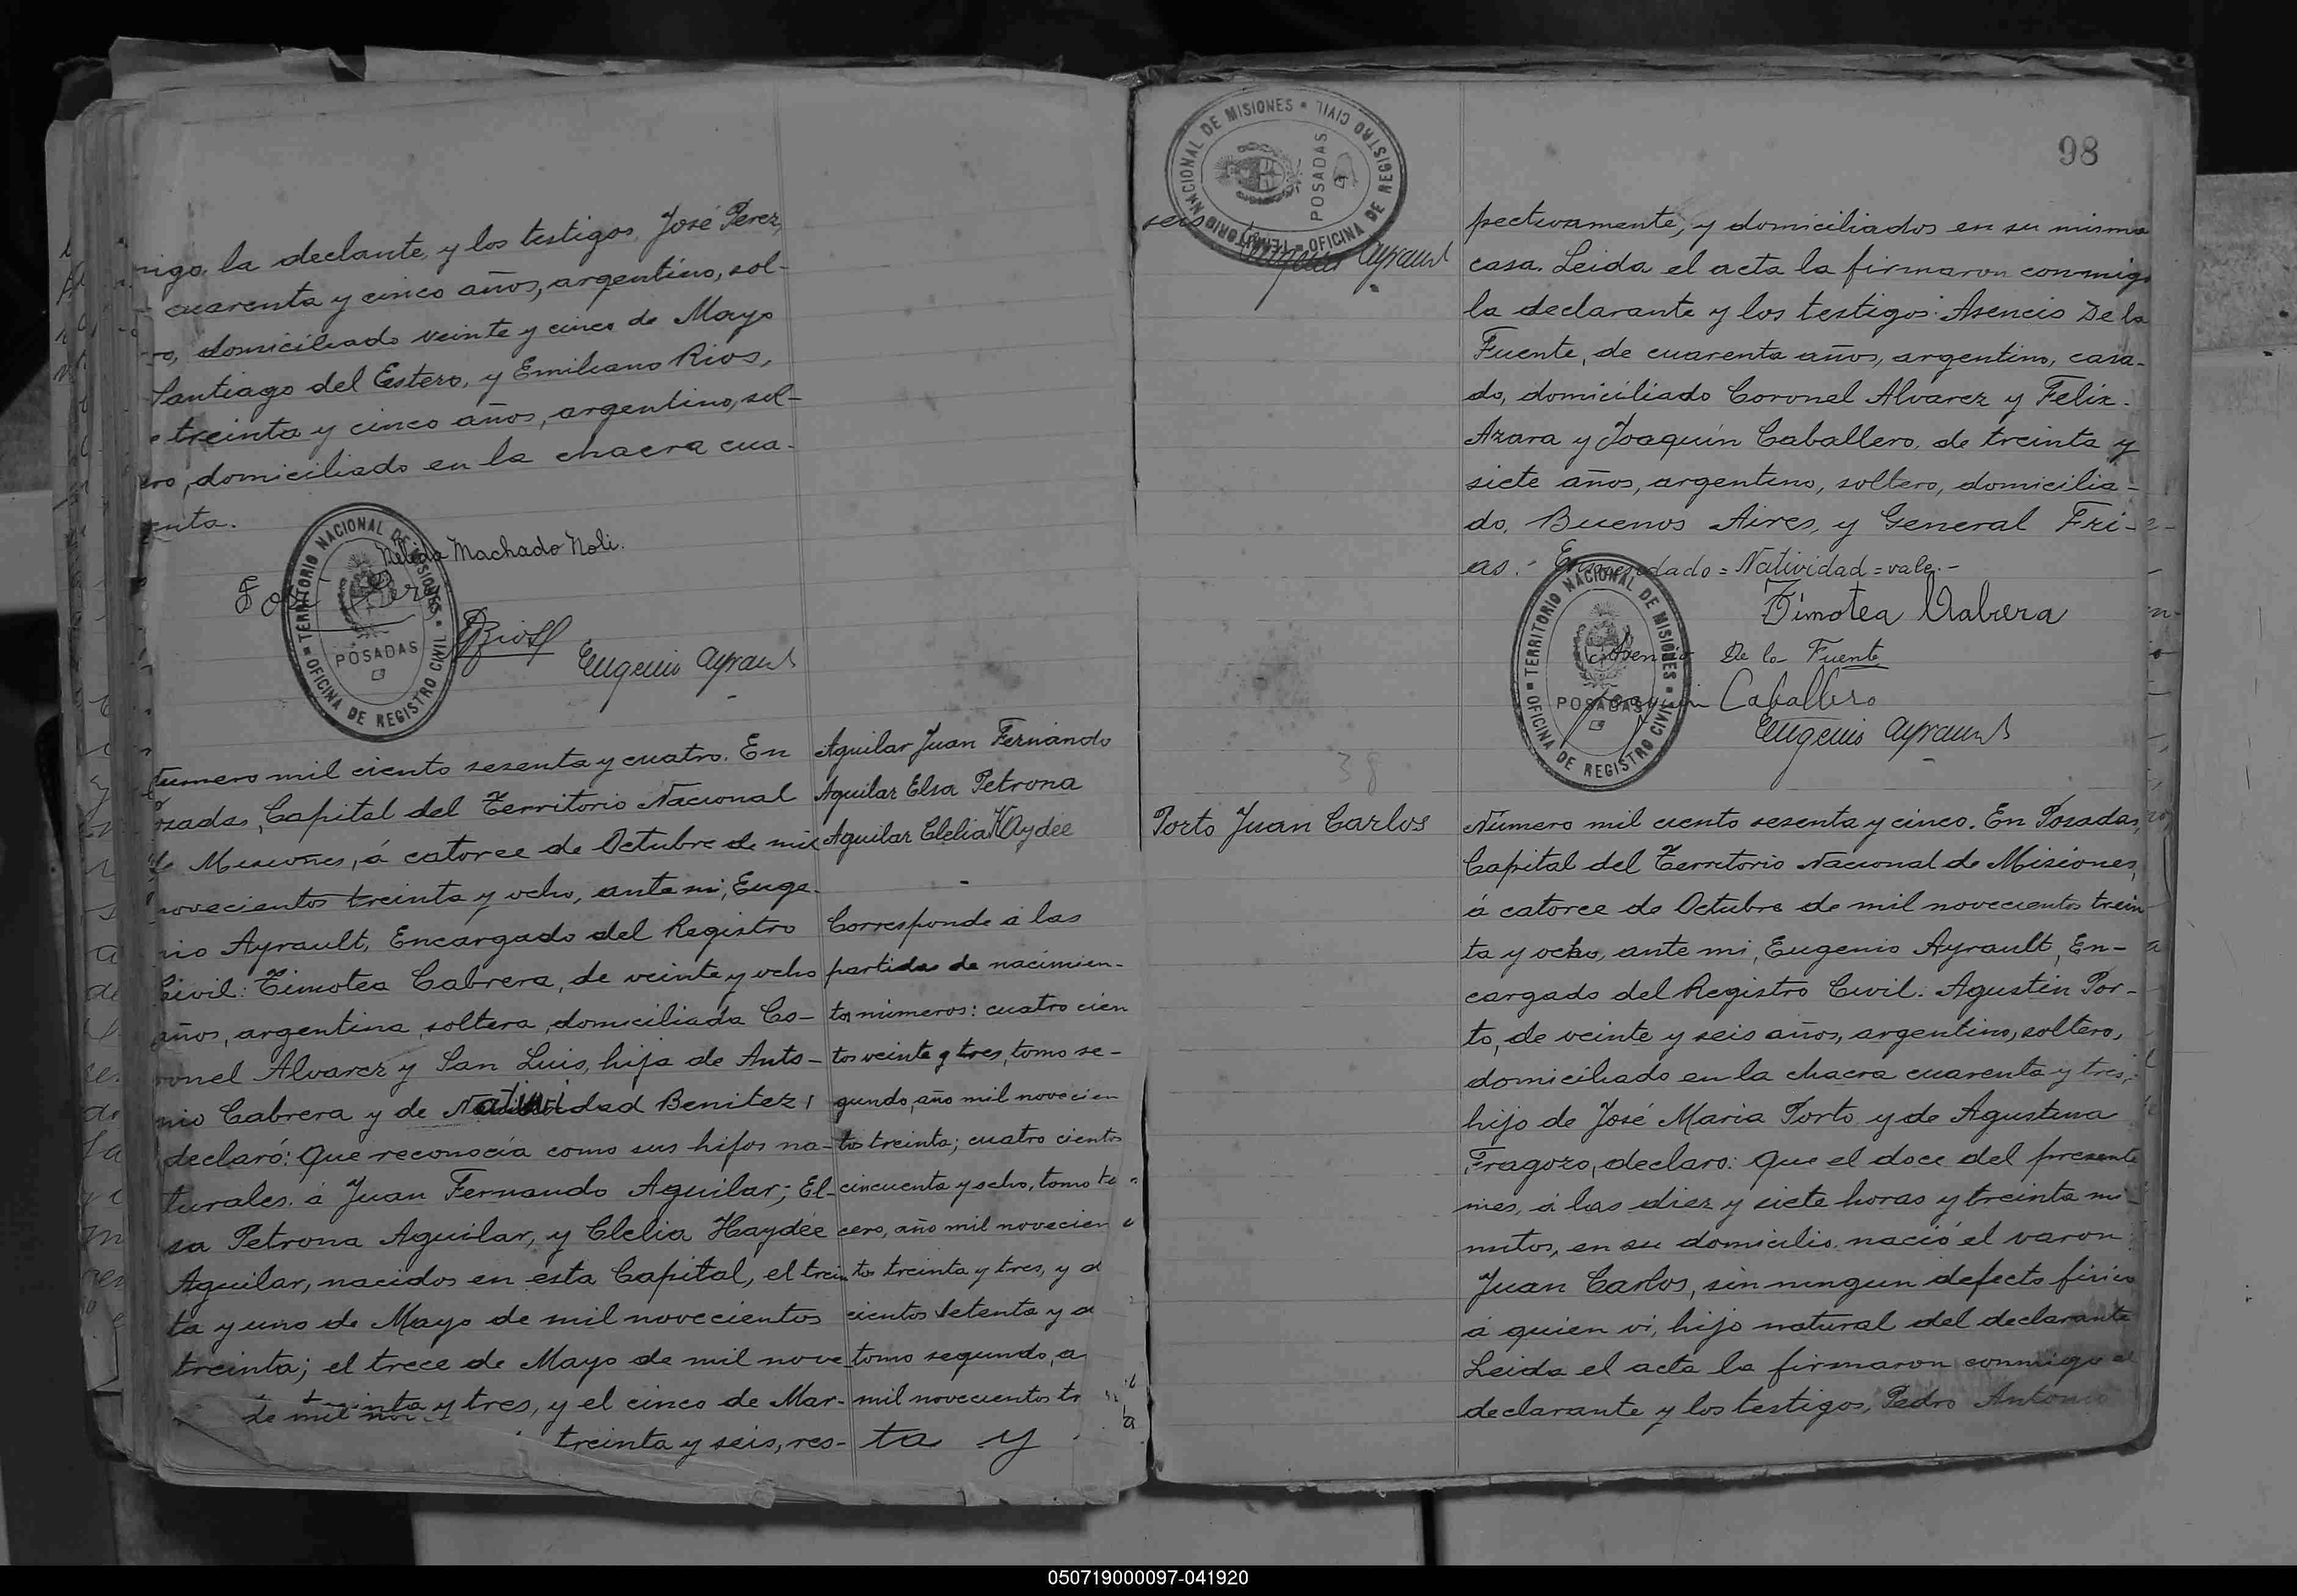 migo, la declante, y los testigos, José Perez,
cuarenta y cinco años, argentino, sol-
ro, domiciliado veinte y cinco de Mayo
Santiago del Estero, y Emiliano Rios,
e treinta y cinco años, argentino, sol-
ero, domiciliado en la chacra cua-
renta.
Nelida Machado Noli.
José Perez
ERios
Eugenio Ayrault
TERRITORIO NACIONAL DE MISIONES
POSADAS
OFICINA DE REGISTRO CIVIL
Numero mil ciento sesenta y cuatro. En
Posadas, Capital del Territorio Nacional
de Misiones, á catorce de Octubre de mil
novecientos treinta y ocho, ante mi, Euge-
nio Ayrault, Encargado del Registro
Civil: Timotea Cabrera, de veinte y ocho
años, argentina, soltera, domiciliada Co-
ronel Alvarez y San Luis, hija de Anto-
nio Cabrera y de Natividad Benitez,
declaró: Que reconocía como sus hijos na-
turales. á Juan Fernando Aguilar; El-
sa Petrona Aguilar, y Clelia Haydée
Aguilar, nacidos en esta Capital, el trein
ta y uno de Mayo de mil novecientos
treinta; el trece de Mayo de mil nove
treinta y tres, y el cinco de Mar-
de mil nov
treinta y seis, res-
Aguilar Juan Fernando
Aguilar Elsa Petrona
Aguilar Clelia Haydée
-
Corresponde á las
partidas de nacimien-
tos números: cuatro cien
tos veinte y tres, tomo se-
gundo, año mil novecien
tos treinta; cuatro cientos
cincuenta y ocho, tomo te
cero, año mil novecien
tos treinta y tres, y
cientos setenta y
tomo segundo, a
mil novecientos tr
ta y
TERRITORIO NACIONAL DE MISIONES
POSADAS
OFICINA DE REGISTRO CIVIL
seis
Eugenio Ayrault
98
pectivamente, y domiciliados en su misma
casa. Leida el acta la firmaron conmigo
la declarante y los testigos: Asencio De la
Fuente, de cuarenta años, argentino, casa-
do, domiciliado Coronel Alvarez y Felix
Azara y Joaquín Caballero, de treinta y
siete años, argentino, soltero, domicilia-
do, Buenos Aires, y General Frí-
as.- Enmendado = Natividad = vale.-
Timotea Cabrera
Asencio De la Fuente
Joaquin Caballero
Eugenio Ayrault
TERRITORIO NACIONAL DE MISIONES
POSADAS
OFICINA DE REGISTRO CIVIL
38
Porto Juan Carlos
Número mil ciento sesenta y cinco. En Posadas,
Capital del Territorio Nacional de Misiones,
á catorce de Octubre de mil novecientos trein
ta y ocho, ante mi, Eugenio Ayrault, En-
cargado del Registro Civil: Agustin Por-
to, de veinte y seis años, argentino, soltero,
domiciliado en la chacra cuarenta y tres,
hijo de José Maria Porto y de Agustina
Fragozo, declaro: Que el doce del presente
mes, á las diez y siete horas y treinta mi-
nutos, en su domicilio, nació el varon
Juan Carlos, sin ningun defecto físico
á quien vi, hijo natural del declarante
Leida el acta la firmaron conmigo el
declarante y los testigos, Pedro Antonio
050719000097-041920